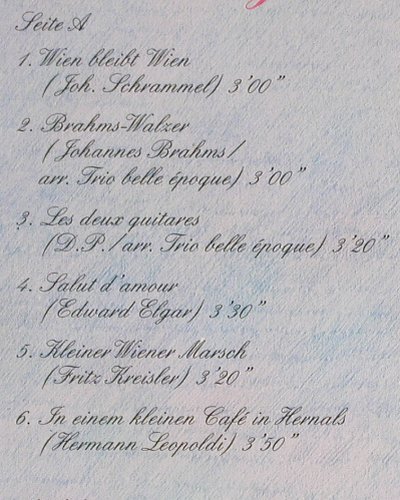 Seite A
1. Wien bleibt Wien
(Joh. Schrammel) 3'00"
2. Brahms-Walzer
(Johannes Brahms/
arr. Trio belle époque) 3'00"
3. Les deux guitares
(D.P./arr. Trio belle époque) 3'20"
4. Salut d'amour
(Edward Elgar) 3'30"
5. Kleiner Wiener Marsch
(Fritz Kreisler) 3'20"
6. In einem kleinen Café in Hernals
(Hermann Leopoldi) 3'50"